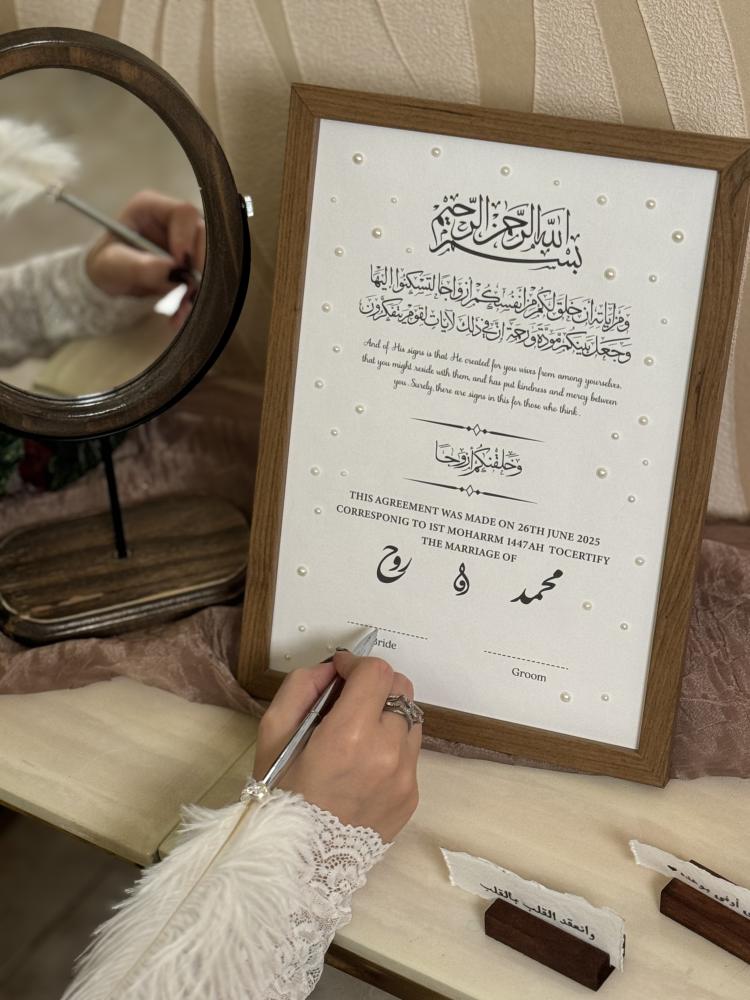 بسم الله الرحمن الرحيم
ومن آياته أن خلق لكم من أنفسكم أزواجا لتسكنوا إليها
وجعل بينكم مودة ورحمة إن في ذلك لآيات لقوم يتفكرون
And of His signs is that He created for you wives from among yourselves,
that you might reside with them, and has put kindness and mercy between
you. Surely there are signs in this for those who think.
وخلقنكم أزوجا
THIS AGREEMENT WAS MADE ON 26TH JUNE 2025
CORRESPONIG TO 1ST MOHARRM 1447AH TOCERTIFY
THE MARRIAGE OF
محمد و روح
Bride
Groom
وانعقد القلب بالقلب
أوفى بوعده